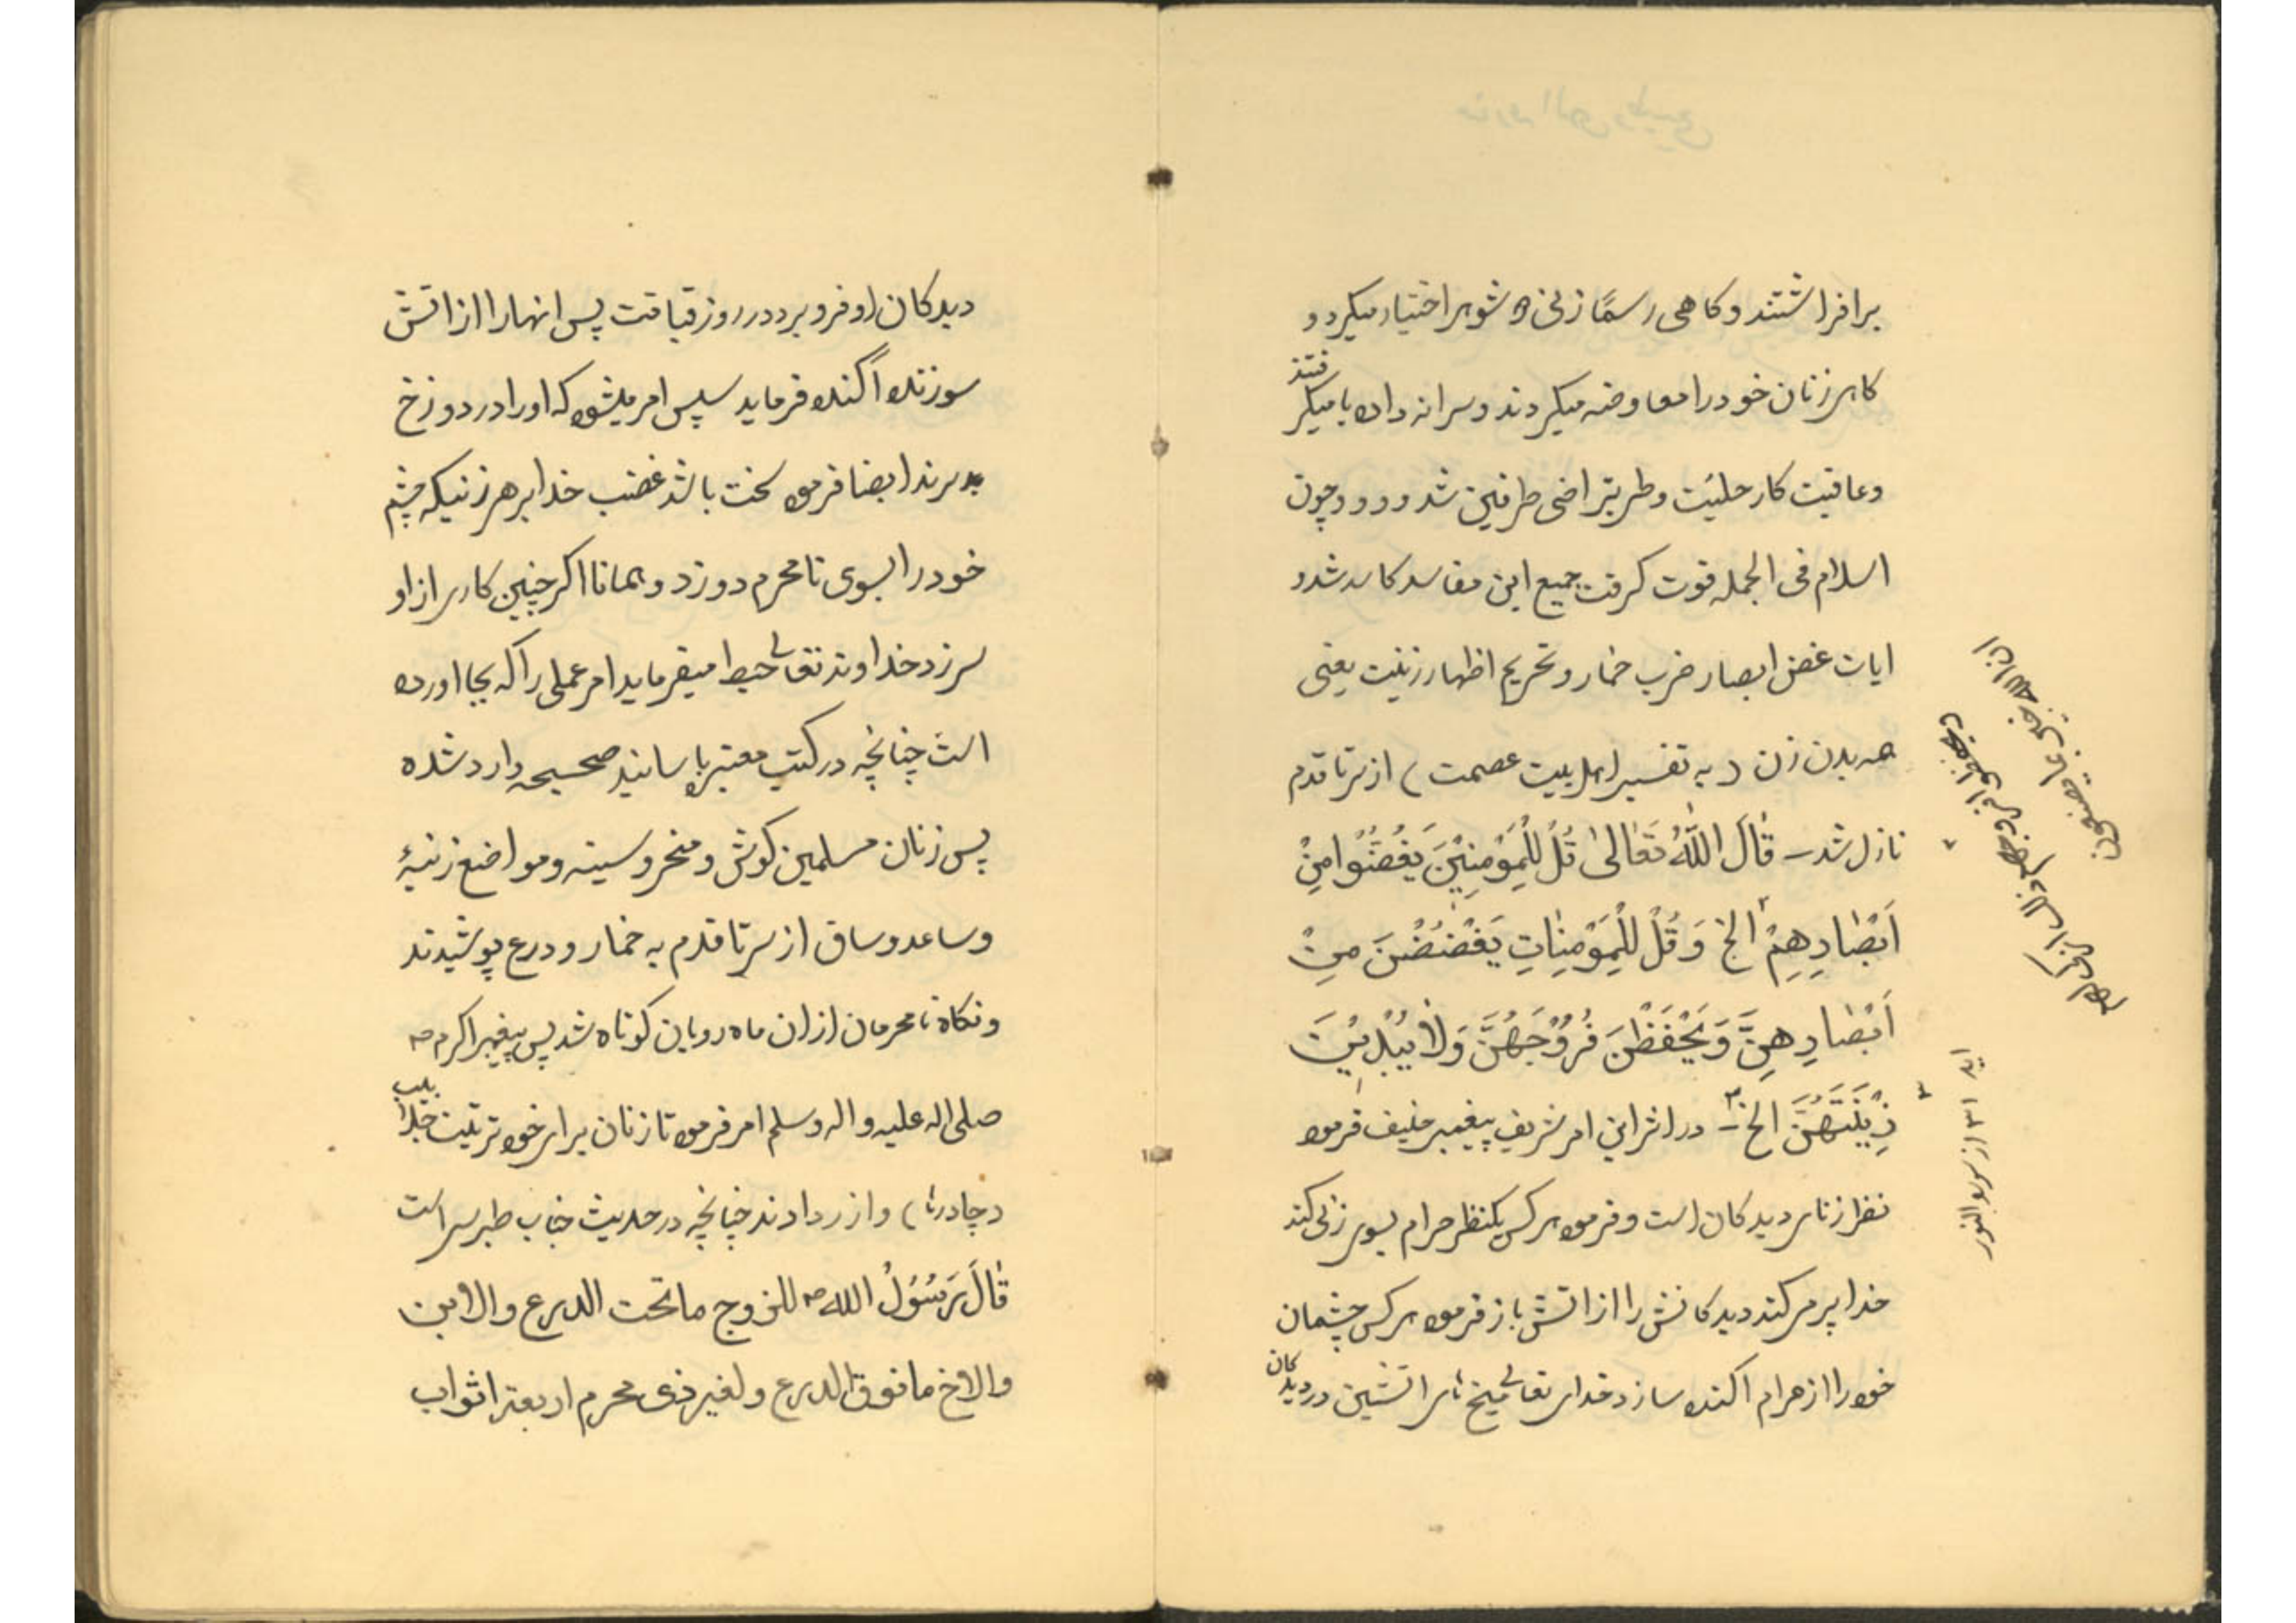 برافراشتند و کاهی رسمًا زنی ۵ شوهر اختیار میکرد و
کاهی زنان خود را معاوضه میکردند و سرانه داده یا میکرفتند
و عاقبت کار حلیّت و طی بتراضی طرفین شد و و و و چون
اسلام فی الجمله قوت کرفت جمیع این مفاسد کاسد شد و
ایات غض ابصار ضرب خمار و تحریم اظهار زینت یعنی
همه بدن زن (به تفسیر اهل بیت عصمت) از سر تا قدم
نازل شد – قٰالَ اللّٰهُ تَعٰالیٰ قُلْ لِلْمُؤْمِنِیْنَ یَغُضُّوْا مِنْ
اَبْصٰارِهِمْ ۲ الخ وَ قُلْ لِلْمُؤْمِنٰاتِ یَغْضُضْنَ مِنْ
اَبْصٰارِهِنَّ وَ یَحْفَظْنَ فُرُوْجَهُنَّ وَلاٰ یُبْدِیْنَ
زِیْنَتَهُنَّ الخ ۳ – در اثر این امر شریف پیغمبر حنیف فرموده
نظر زنای دیدکان است و فرموده هر کس یکنظر حرام بسوی زنی کند
خدا پر میکند دیدکانش را از اتش باز فرموده هر کس چشمان
خود را از حرام اکنده سازد خدای تعالی میخ های اتشین در دیدکان
۲ ویحفظوا فروجهم ذلک ازکی لهم
ان الله خبیر بما یصنعون
۳ ایه ۳۱ از سوره النور
دیدکان او فرو برد در روز قیامت پس انها را از اتش
سوزنده اکنده فرماید سپس امر میشود که او را در دوزخ
برند ایضا فرموده سخت باشد غضب خدا بر هر زنیکه چشم
خود را بسوی نامحرم دوزد و همانا اکر چنین کاری از او
سر زد خداوند تعالی حبط میفرماید امر عملی را که بجا اورده
است چنانچه در کتب معتبر باسانید صحیحه وارد شده
پس زنان مسلمین کوش و منحر و سینه و مواضع زنیهٔ
و ساعد و ساق از سر تا قدم به خمار و درع پوشیدند
و نکاه نامحرمان از ان ماه رویان کوتاه شد پس پیغمبر اکرم ص
صلی اله علیه و اله و سلم امر فرموده تا زنان برای خود ترتیب جلباب
(چادرها) و ازر دادند چنانچه در حدیث جناب طبرسی است
قٰالَ رَسُوْلُ الله ص للزوج ماتحت الدرع و الابن
والاخ مافوق الدرع و لغیر ذی محرم اربعة اثواب